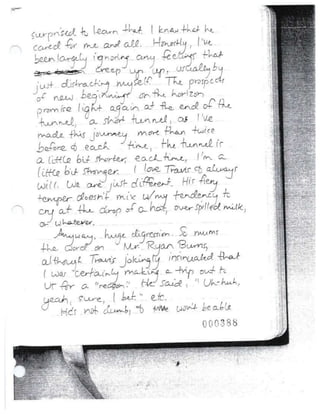 surprised to learn that I knew that he
cared for me and all. Honestly, I've
been largely ignoring any feelings that
creep up, usually by
just distracting myself. The prospects
of new beginnings on the horizon
promise light again at the end of the
tunnel, a short tunnel, as I've
made this journey more than twice
before & each time, the tunnel is
a little bit shorter, each time, I'm a
little bit stronger. I love Travis & always
will. We are just different. His fiery
temper doesn't mix w/my tendency to
cry at the drop of a hat, over spilled milk,
or whatever.
Anyway, huge digression. So mums
the word on Mr. Ryan Burns,
although Travis jokingly insinuated that
I was "certainly making a trip out to
UT for a "reason." He said, "Uh-huh,
yeah, sure, I bet" etc.
He's not dumb, & won't be able
000388